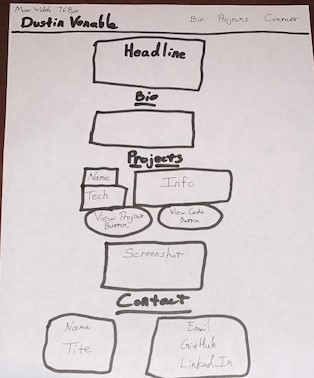 Max Width 768px
Dustin Venable
Bio Projects Contact
Headline
Bio
Projects
Name
Tech
Info
View Project
Button
View Code
Button
Screenshot
Contact
Name
Title
Email
GitHub
LinkedIn